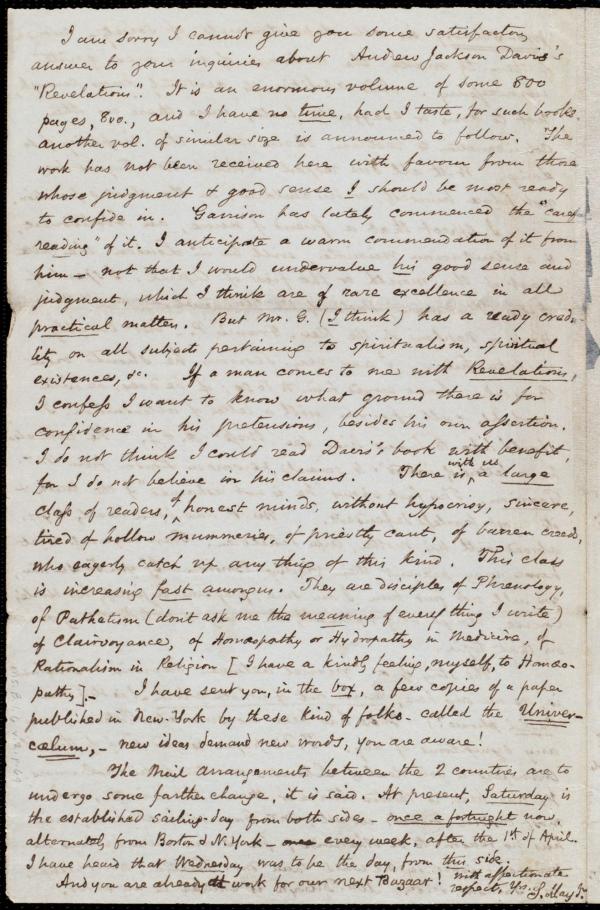 I am sorry I cannot give you some satisfactory
answer to your inquiries about Andrew Jackson Davis's
"Revelations". It is an enormous volume of some 800
pages, 8vo., and I have no time, had I taste, for such books.
another vol. of similar size is announced to follow. The
work has not been received here with favour from those
whose judgment & good sense I should be most ready
to confide in. Garrison has lately commenced the "caref
reading" of it. I anticipate a warm commendation of it from
him — not that I would undervalue his good sense and
judgment, which I think are of rare excellence in all
practical matters. But Mr. G. (I think) has a ready cred-
ulity on all subjects pertaining to spiritualism, spiritual
existences, &c. If a man comes to me with Revelations,
I confess I want to know what ground there is for
confidence in his pretensions, besides his own assertion.
I do not think I could read Davis's book with benefit,
for I do not believe in his claims. There is with us a large
class of readers, of honest minds, without hypocrisy, sincere,
tired of hollow mummeries, of priestly cant, of barren creeds,
who eagerly catch up any thing of this kind. This class
is increasing fast among us. They are disciples of Phrenology,
of Pathetism (don't ask me the meaning of every thing I write)
of Clairvoyance, of Homœopathy or Hydropathy in Medicine, of
Rationalism in Religion [I have a kindly feeling, myself, to Homœo-
pathy]. — I have sent you, in the box, a few copies of a paper
published in New-York by these kind of folks - called the Univer-
cœlum, — new ideas demand new words, you are aware!
The Mail arrangements between the 2 countries are to
undergo some farther change, it is said. At present, Saturday is
the established sailing-day from both sides - once a fortnight now,
alternately from Boston & N. York - every week, after the 1st of April.
I have heard that Wednesday was to be the day, from this side.
And you are already at work for our next Bazaar! with affectionate
respect, Yrs. S. May Jr.